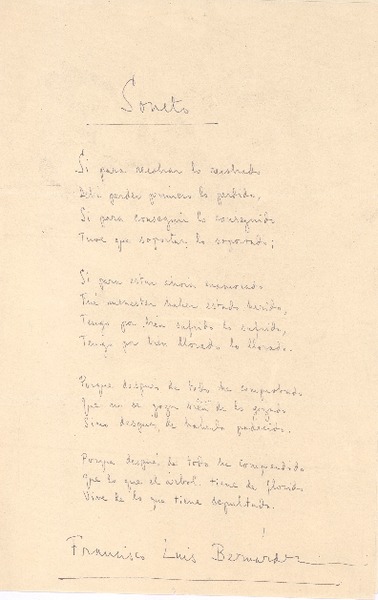 Soneto
Si para recobrar lo recobrado
Debí perder primero lo perdido,
Si para conseguir lo conseguido
Tuve que soportar lo soportado;
Si para estar ahora enamorado
Fué menester haber estado herido,
Tengo por bien sufrido lo sufrido,
Tengo por bien llorado lo llorado.
Porque después de todo he comprobado
Que no se goza bien de lo gozado
Sino después de haberlo padecido.
Porque después de todo he comprendido
Que lo que el árbol tiene de florido
Vive de lo que tiene sepultado.
Francisco Luis Bernárdez